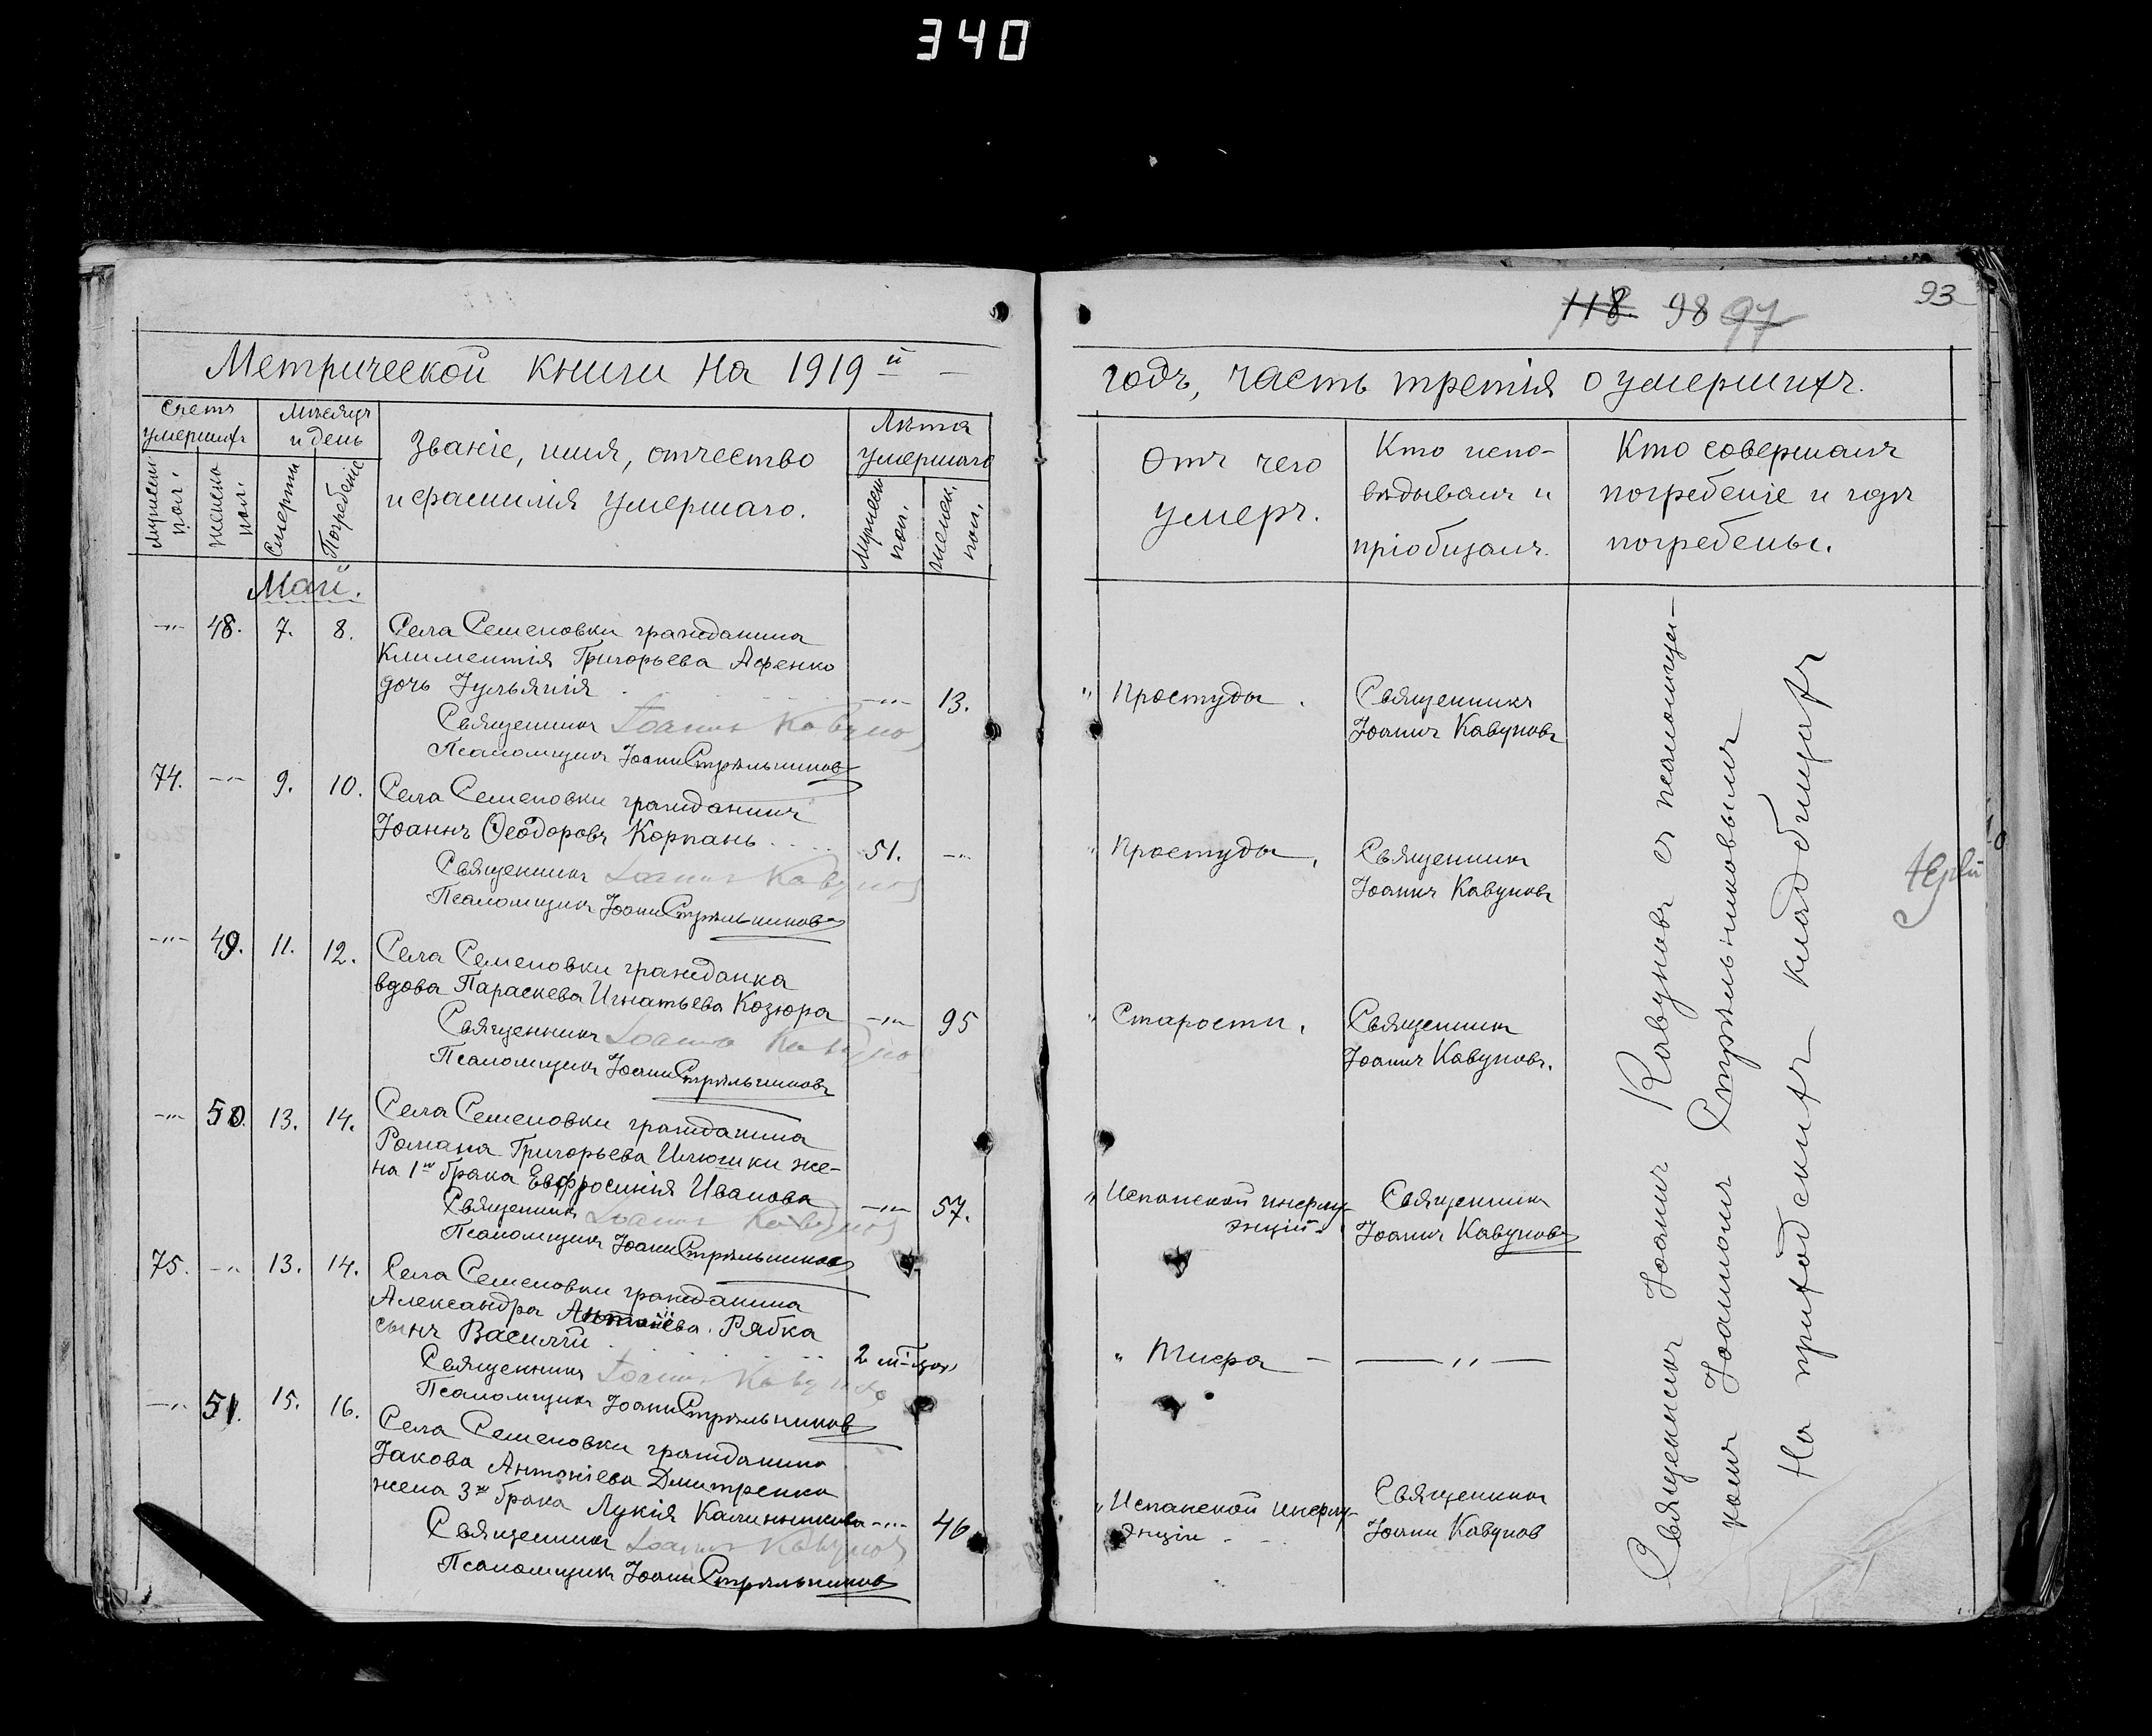 340
118. 98 97
93
Метрической книги на 1919й
годъ, часть третія о умершихъ.
Счетъ умершихъ
Мѣсяцъ и день
Званіе, имя, отчество
и фамилія умершаго.
Лѣта умершаго
Мужеск. пол.
женск. пол.
Смерти
Погребенія
Мужеск. пол.
женск. пол.
Отъ чего
умеръ.
Кто испо-
вѣдывалъ и
пріобщалъ.
Кто совершалъ
погребеніе и гдѣ
погребены.
Май.
-"- 48. 7. 8. Села Семеновки гражданина
Климентія Григорьева Афенко
дочь Іульянія -"- 13.
Священникъ Іоаннъ Кавуно
Псаломщикъ Іоаннъ Стрѣльниковъ
" Простуды.
Священникъ
Іоаннъ Кавуновъ
74. -"- 9. 10. Села Семеновки гражданинъ
Іоаннъ Ѳеодоровъ Корпань 51. -"-
Священникъ Іоаннъ Кавунов
Псаломщикъ Іоаннъ Стрѣльниковъ
" Простуды.
Священникъ
Іоаннъ Кавуновъ
-"- 49. 11. 12. Села Семеновки гражданка
вдова Параскева Игнатьева Козюра -"- 95
Священникъ Іоаннъ Кавуно
Псаломщикъ Іоаннъ Стрѣльниковъ
" Старости.
Священникъ
Іоаннъ Кавуновъ.
-"- 50. 13. 14. Села Семеновки гражданина
Романа Григорьева Илюшки же-
на 1го брака Евфросинія Иванова -"- 57.
Священникъ Іоаннъ Кавунов
Псаломщикъ Іоаннъ Стрѣльников
" Испанской инфлу-
энціи
Священникъ
Іоаннъ Кавуновъ
75. -"- 13. 14. Села Семеновки гражданина
Александра Рябка
сынъ Василій 2 м-ца
Священникъ Іоаннъ Кавуно
Псаломщикъ Іоаннъ Стрѣльников
" Тифа - — " —
-"- 51. 15. 16. Села Семеновки гражданина
Іакова Антоніева Дмитренка
жена 3го брака Лукія Калинникова -"- 46
Священникъ Іоаннъ Кавунов
Псаломщикъ Іоаннъ Стрѣльников
" Испанской инфлу-
энціи
Священникъ
Іоаннъ Кавунов
Священникъ Іоаннъ Кавуновъ съ псаломщи-
комъ Іоанномъ Стрѣльниковымъ
На приходскихъ кладбищахъ